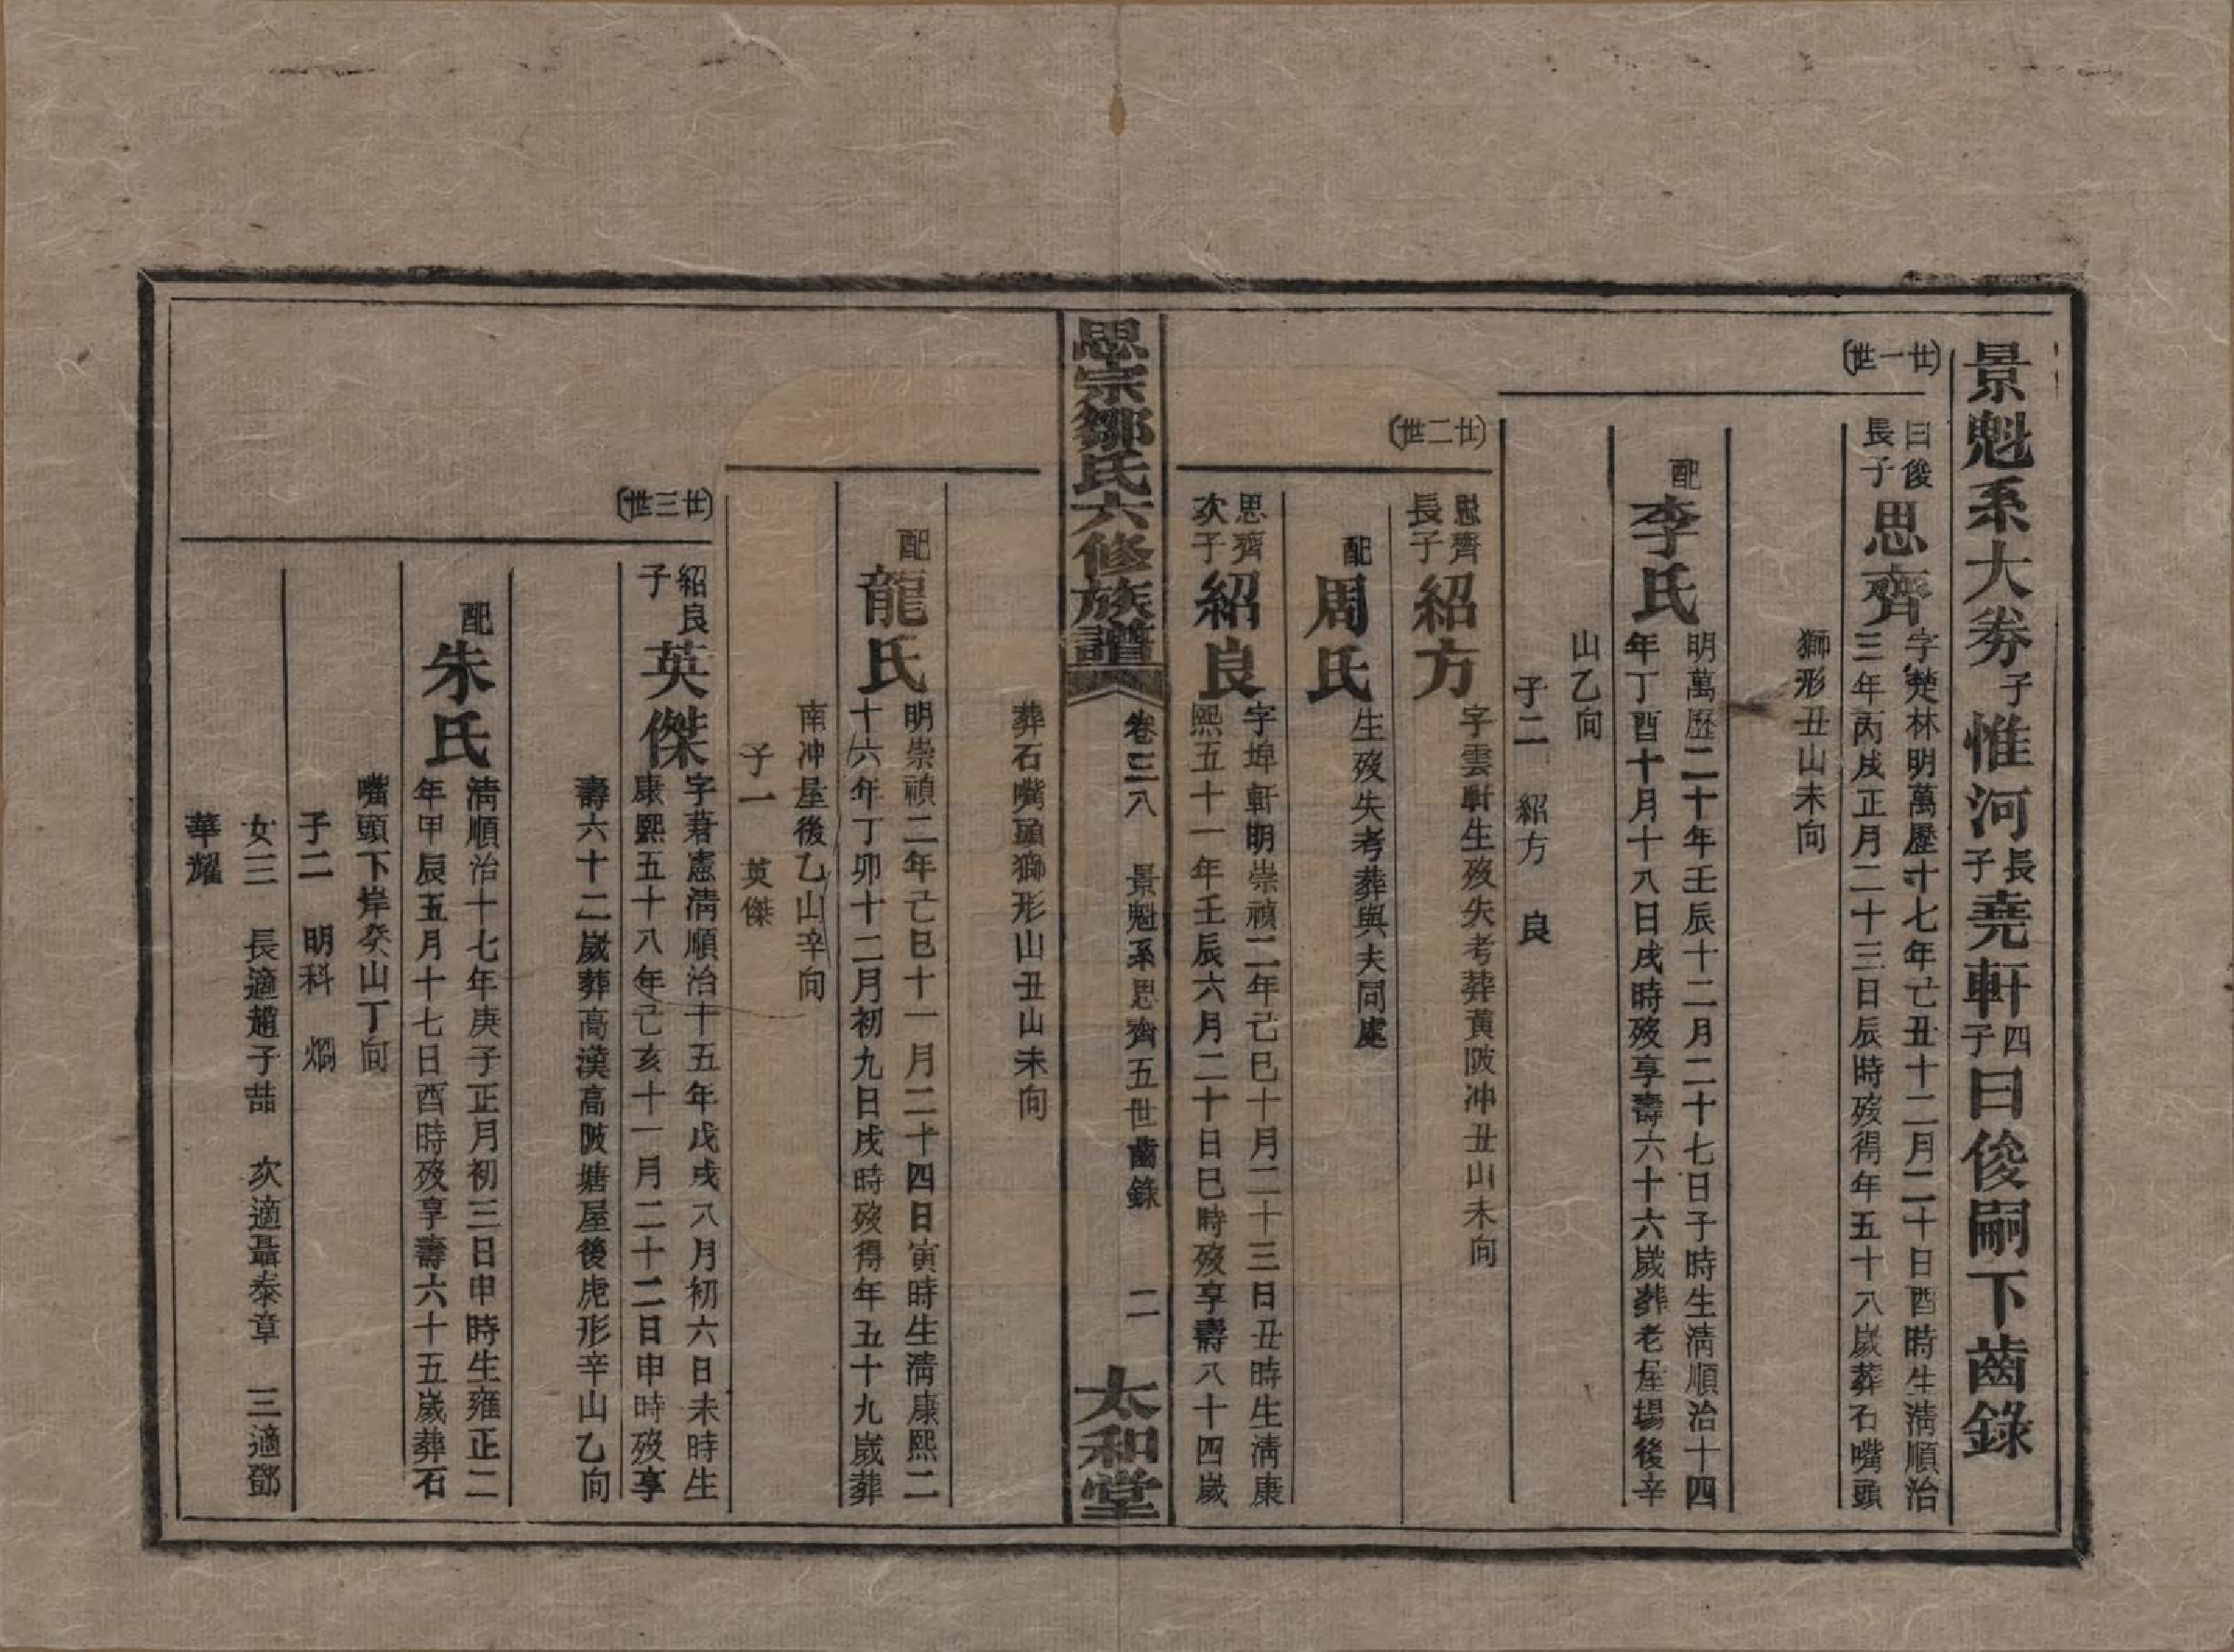 景魁系大劵子惟河長子堯軒四子曰俊嗣下齒錄
(廿一世)
曰俊長子
思齊
字楚林明萬歷十七年己丑十二月二十日酉時生淸順治
三年丙戌正月二十三日辰時歿得年五十八歲葬石嘴頭
獅形丑山未向
配
李氏
明萬歷二十年壬辰十二月二十七日子時生淸順治十四
年丁酉十月十八日戌時歿享壽六十六歲葬老屋場後辛
山乙向
子二 紹方 良
(廿二世)
思齊長子
紹方
字雲軒生歿失考葬黃陂冲丑山未向
配
周氏
生歿失考葬與夫同處
思齊次子
紹良
字埠軒明崇禎二年己巳十月二十三日丑時生淸康
熙五十一年壬辰六月二十日巳時歿享壽八十四歲
思宗鄒氏六修族譜
卷三八 景魁系思齊五世齒錄 二
太和堂
葬石嘴頭獅形山丑山未向
配
龍氏
明崇禎二年己巳十一月二十四日寅時生淸康熙二
十六年丁卯十二月初九日戌時歿得年五十九歲葬
南冲屋後乙山辛向
子一 英傑
(廿三世)
紹良子
英傑
字莙憲淸順治十五年戊戌八月初六日未時生
康熙五十八年己亥十一月二十二日申時歿享
壽六十二歲葬高漢高陂塘屋後虎形辛山乙向
配
朱氏
淸順治十七年庚子正月初三日申時生雍正二
年甲辰五月十七日酉時歿享壽六十五歲葬石
嘴頭下岸癸山丁向
子二 明科 烱
女三 長適趙子喆 次適聶泰章 三適鄧
華耀